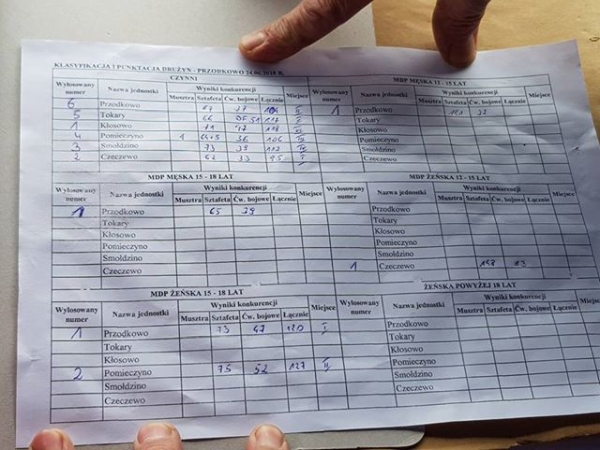 KLASYFIKACJA I PUNKTACJA DRUŻYN - PRZODKOWO 24.06.2018 R.
CZYNNI
Wylosowany numer Nazwa jednostki Wyniki konkurencji Miejsce
Musztra Sztafeta Ćw. bojowe Łącznie
6 Przodkowo
5 Tokary 66
1 Kłosowo 71 47 118
4 Pomieczyno 1 36 106
3 Smołdzino 73 39
2 Czeczewo 62 33 95 I
MDP MĘSKA 12 - 15 LAT
Wylosowany numer Nazwa jednostki Wyniki konkurencji Miejsce
Musztra Sztafeta Ćw. bojowe Łącznie
1 Przodkowo
MDP MĘSKA 15 - 18 LAT
Wylosowany numer Nazwa jednostki Wyniki konkurencji Miejsce
Musztra Sztafeta Ćw. bojowe Łącznie
1 Przodkowo 65 39
Tokary
Kłosowo
Pomieczyno
Smołdzino
Czeczewo
MDP ŻEŃSKA 12 - 15 LAT
Wylosowany numer Nazwa jednostki Wyniki konkurencji Miejsce
Musztra Sztafeta Ćw. bojowe Łącznie
Przodkowo
Tokary
Kłosowo
Pomieczyno
Smołdzino
1 Czeczewo
MDP ŻEŃSKA 15 - 18 LAT
Wylosowany numer Nazwa jednostki Wyniki konkurencji Miejsce
Musztra Sztafeta Ćw. bojowe Łącznie
1 Przodkowo 73 47 120 I
Tokary
Kłosowo
2 Pomieczyno 75 52 127 II
Smołdzino
Czeczewo
ŻEŃSKA POWYŻEJ 18 LAT
Wylosowany numer Nazwa jednostki Wyniki konkurencji Miejsce
Musztra Sztafeta Ćw. bojowe Łącznie
Przodkowo
Tokary
Kłosowo
Pomieczyno
Smołdzino
Czeczewo